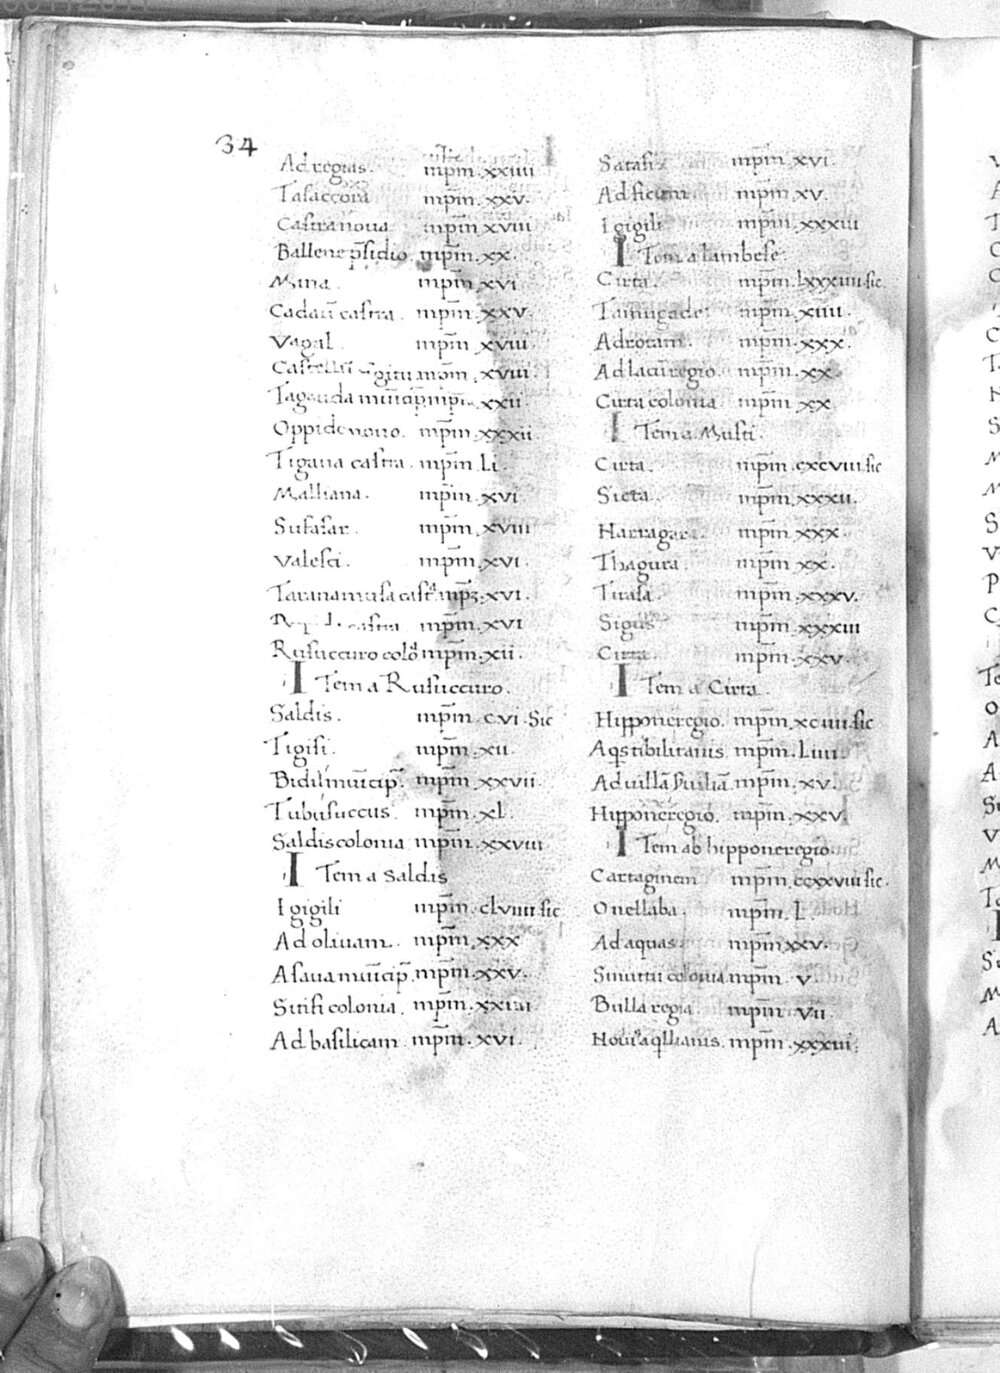 34
Ad regias. mp̄m. xxiiii
Tasaccora mp̄m. xxv.
Castra noua mp̄m. xviii
Ballene p̄sidio. mp̄m. xx.
Mina. mp̄m. xvi
Cadaū castra. mp̄m. xxv.
Vagal mp̄m. xviii.
Castellū gitanom̄. xviii
Tagauda mūicip̄ mpm. xxii.
Oppidonouo. mp̄m. xxxii
Tigaua castra. mp̄m. Li.
Malliana. mp̄m. xvi
Sufasar. mp̄m. xviii
Valesci. mp̄m. xvi
Taranamusa cast. mp̄. xvi.
castra mp̄m. xvi
Rusuccuro colo mp̄m. xii.
ITem a Rusuccuro.
Saldis. mp̄m. cvi. Sic
Tigisi. mp̄m. xii
Bidil mūicip̄. mp̄m. xxvii.
Tubusuccus. mp̄m. xl.
Saldis colonia mp̄m. xxviii
ITem a Saldis
Igigili mp̄m. clviiii. sic
Ad oliuam. mp̄m. xxx
Asaua mūicip̄. mp̄m. xxv.
Sitifi colonia. mp̄m. xxiiii
Ad basilicam mp̄m. xvi.
Satafi mp̄m. xvi.
Ad ficum mp̄m. xv.
Igigili mp̄m. xxxiii
ITem a lambese.
Cirta. mp̄m. lxxxiiii. sic.
Tamugade. mp̄m. xiiii.
Adrotam. mp̄m. xxx.
Ad lacū regio. mp̄m. xx.
Cirta colonia. mp̄m. xx.
ITem a Musti.
Cirta. mp̄m. cxcviii. sic
Sicta. mp̄m. xxxii.
Harragara. mp̄m. xxx.
Thagura. mp̄m. xx.
Tirasa. mp̄m. xxxv.
Sigus mp̄m. xxxiii
Cirta. mp̄m. xxv.
ITem a Cirta.
Hipponeregio. mp̄m. xciiii. sic
Aq̄stibilitanis. mp̄m. Liiii.
Ad uillā s̄uiliā mp̄m. xv.
Hipponeregio. mp̄m. xxv.
ITem ab hipponeregio.
Cartaginem mp̄m. ccxxviii. sic.
Onellaba. mp̄m. L
Ad aquas. mp̄m xxv.
Simittu colonia mp̄m. v.
Bulla regia. mp̄m. vii.
Nouis aq̄llianis. mp̄m. xxxiii